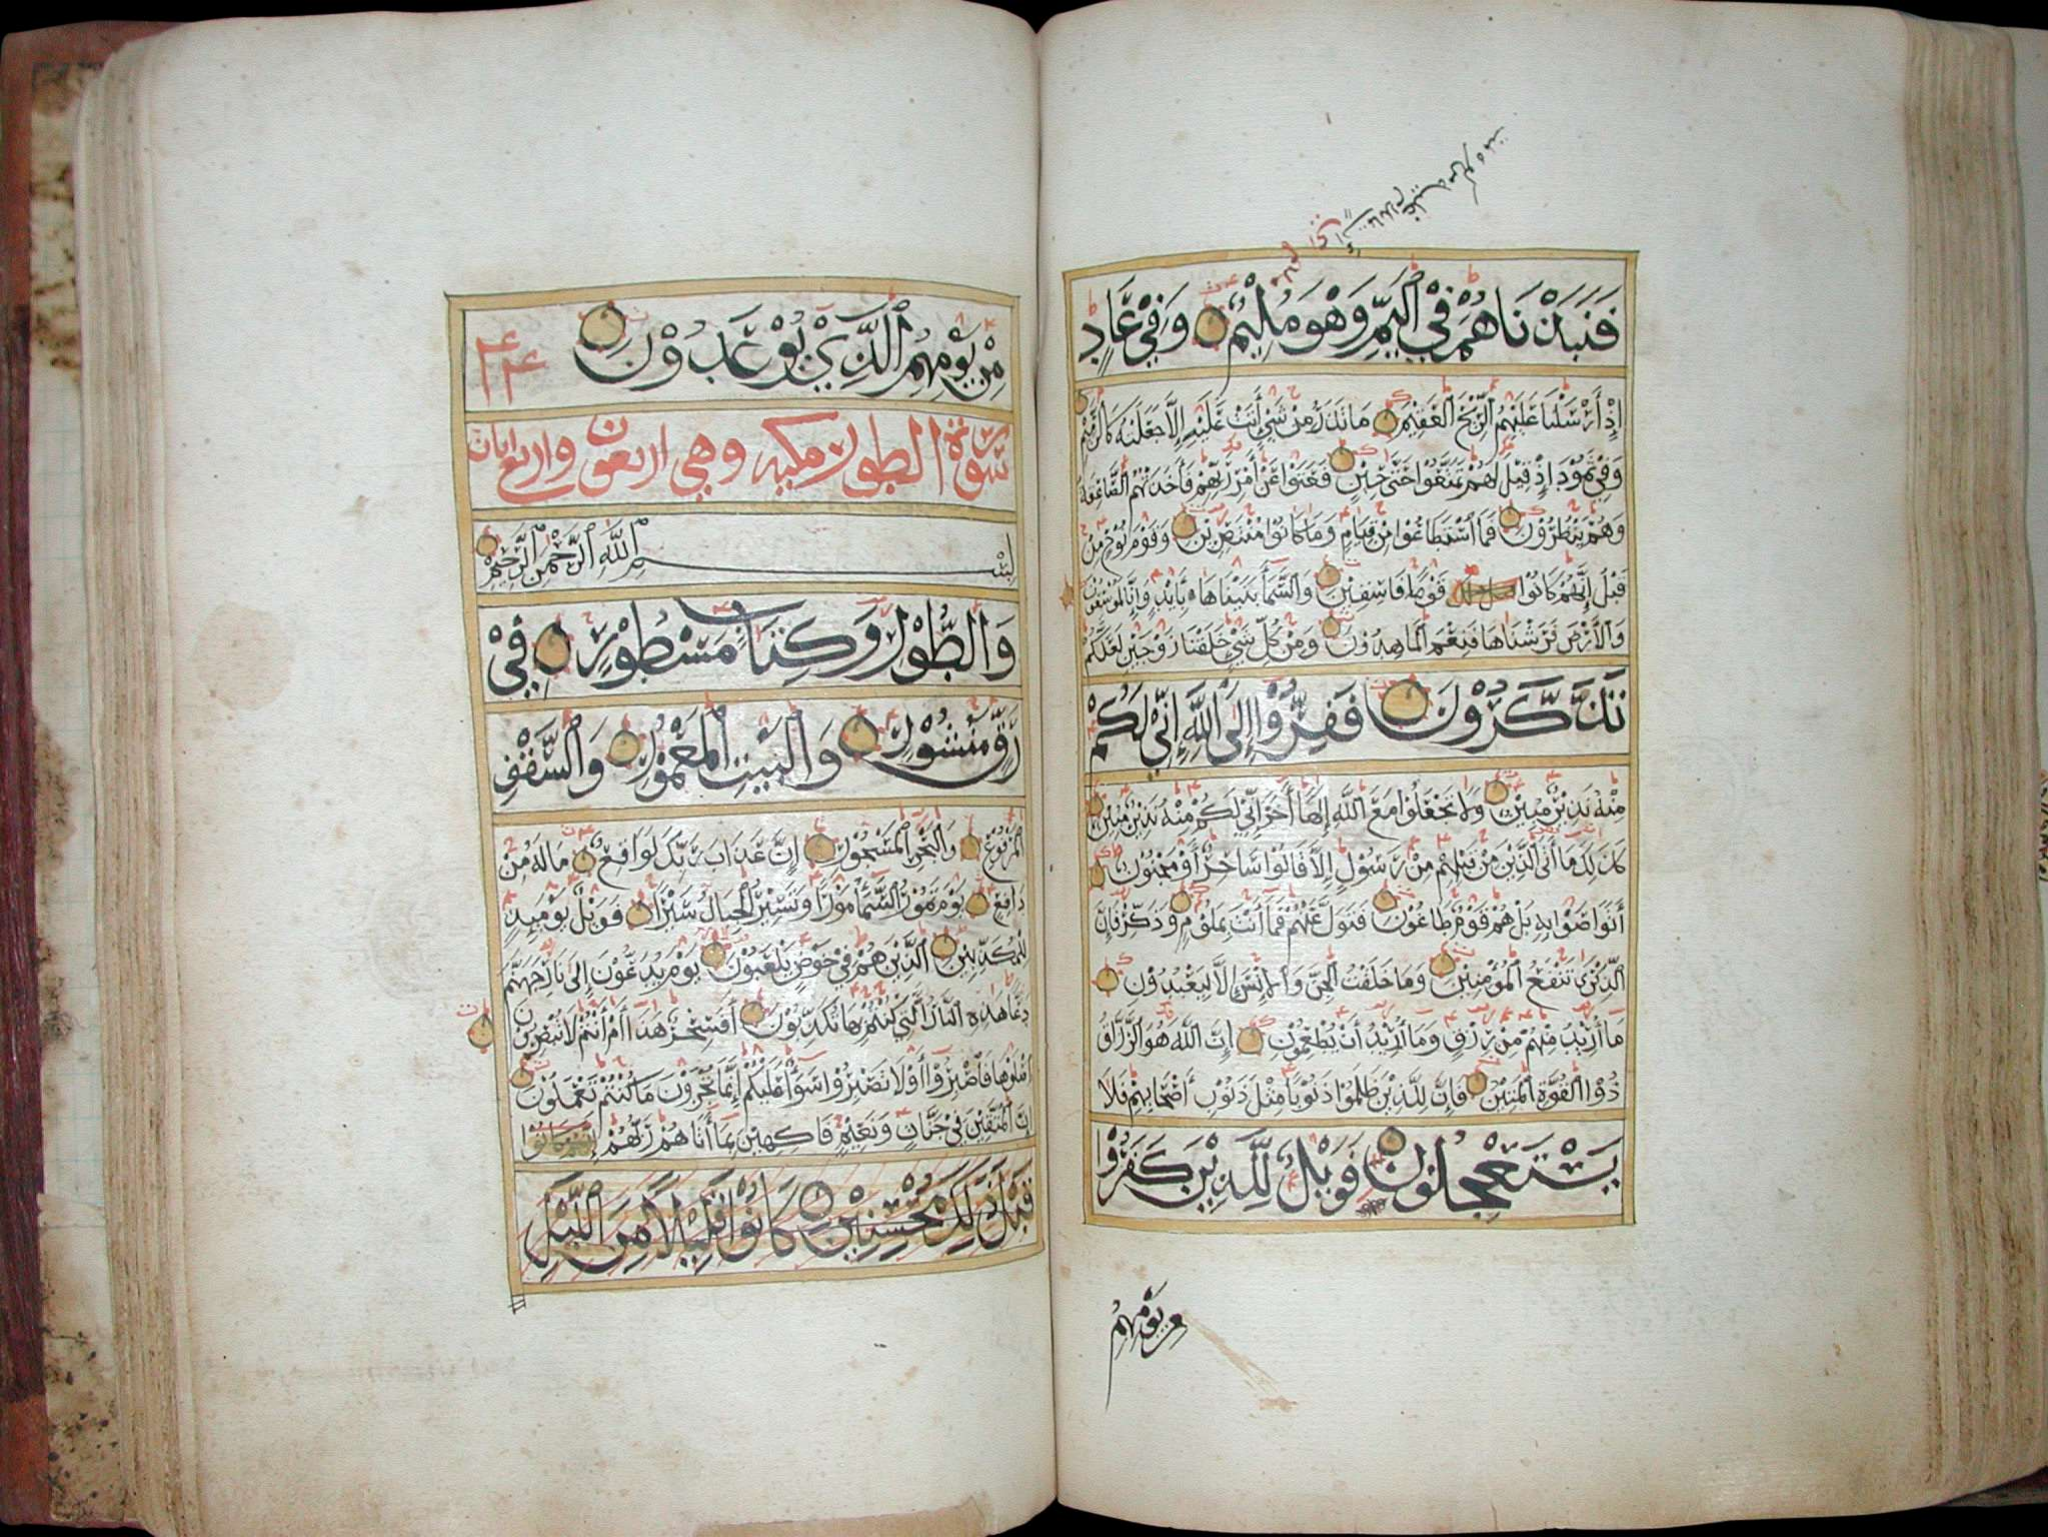 فَنَبَذْنَاهُمْ فِي ٱلْيَمِّ وَهُوَ مُلِيمٌ وَفِي عَادٍ
إِذْ أَرْسَلْنَا عَلَيْهِمُ ٱلرِّيحَ ٱلْعَقِيمَ مَا تَذَرُ مِنْ شَيْءٍ أَتَتْ عَلَيْهِ إِلَّا جَعَلَتْهُ كَٱلرَّمِيمِ
وَفِي ثَمُودَ إِذْ قِيلَ لَهُمْ تَمَتَّعُوا حَتَّى حِينٍ فَعَتَوْا عَنْ أَمْرِ رَبِّهِمْ فَأَخَذَتْهُمُ ٱلصَّاعِقَةُ
وَهُمْ يَنْظُرُونَ فَمَا ٱسْتَطَاعُوا مِنْ قِيَامٍ وَمَا كَانُوا مُنْتَصِرِينَ وَقَوْمَ نُوحٍ مِنْ
قَبْلُ إِنَّهُمْ كَانُوا قَوْمًا فَاسِقِينَ وَٱلسَّمَاءَ بَنَيْنَاهَا بِأَيْدٍ وَإِنَّا لَمُوسِعُونَ
وَٱلْأَرْضَ فَرَشْنَاهَا فَنِعْمَ ٱلْمَاهِدُونَ وَمِنْ كُلِّ شَيْءٍ خَلَقْنَا زَوْجَيْنِ لَعَلَّكُمْ
تَذَكَّرُونَ فَفِرُّوا إِلَى ٱللَّهِ إِنِّي لَكُمْ
مِنْهُ نَذِيرٌ مُبِينٌ وَلَا تَجْعَلُوا مَعَ ٱللَّهِ إِلَهًا آخَرَ إِنِّي لَكُمْ مِنْهُ نَذِيرٌ مُبِينٌ
كَذَلِكَ مَا أَتَى ٱلَّذِينَ مِنْ قَبْلِهِمْ مِنْ رَسُولٍ إِلَّا قَالُوا سَاحِرٌ أَوْ مَجْنُونٌ
أَتَوَاصَوْا بِهِ بَلْ هُمْ قَوْمٌ طَاغُونَ فَتَوَلَّ عَنْهُمْ فَمَا أَنْتَ بِمَلُومٍ وَذَكِّرْ فَإِنَّ
ٱلذِّكْرَى تَنْفَعُ ٱلْمُؤْمِنِينَ وَمَا خَلَقْتُ ٱلْجِنَّ وَٱلْإِنْسَ إِلَّا لِيَعْبُدُونِ
مَا أُرِيدُ مِنْهُمْ مِنْ رِزْقٍ وَمَا أُرِيدُ أَنْ يُطْعِمُونِ إِنَّ ٱللَّهَ هُوَ ٱلرَّزَّاقُ
ذُو ٱلْقُوَّةِ ٱلْمَتِينُ فَإِنَّ لِلَّذِينَ ظَلَمُوا ذَنُوبًا مِثْلَ ذَنُوبِ أَصْحَابِهِمْ فَلَا
يَسْتَعْجِلُونِ فَوَيْلٌ لِلَّذِينَ كَفَرُوا
من يَوْمِهِمُ
مِنْ يَوْمِهِمُ ٱلَّذِي يُوعَدُونَ
سورة الطور مكيه وهي اربعون واربع ايات
بِسْمِ ٱللَّهِ ٱلرَّحْمَنِ ٱلرَّحِيمِ
وَٱلطُّورِ وَكِتَابٍ مَسْطُورٍ فِي
رَقٍّ مَنْشُورٍ وَٱلْبَيْتِ ٱلْمَعْمُورِ وَٱلسَّقْفِ
ٱلْمَرْفُوعِ وَٱلْبَحْرِ ٱلْمَسْجُورِ إِنَّ عَذَابَ رَبِّكَ لَوَاقِعٌ مَا لَهُ مِنْ
دَافِعٍ يَوْمَ تَمُورُ ٱلسَّمَاءُ مَوْرًا وَتَسِيرُ ٱلْجِبَالُ سَيْرًا فَوَيْلٌ يَوْمَئِذٍ
لِلْمُكَذِّبِينَ ٱلَّذِينَ هُمْ فِي خَوْضٍ يَلْعَبُونَ يَوْمَ يُدَعُّونَ إِلَى نَارِ جَهَنَّمَ
دَعًّا هَذِهِ ٱلنَّارُ ٱلَّتِي كُنْتُمْ بِهَا تُكَذِّبُونَ أَفَسِحْرٌ هَذَا أَمْ أَنْتُمْ لَا تُبْصِرُونَ
ٱصْلَوْهَا فَٱصْبِرُوا أَوْ لَا تَصْبِرُوا سَوَاءٌ عَلَيْكُمْ إِنَّمَا تُجْزَوْنَ مَا كُنْتُمْ تَعْمَلُونَ
إِنَّ ٱلْمُتَّقِينَ فِي جَنَّاتٍ وَنَعِيمٍ فَاكِهِينَ بِمَا آتَاهُمْ رَبُّهُمْ إِنَّهُمْ كَانُوا
قَبْلَ ذَلِكَ مُحْسِنِينَ كَانُوا قَلِيلًا مِنَ ٱللَّيْلِ